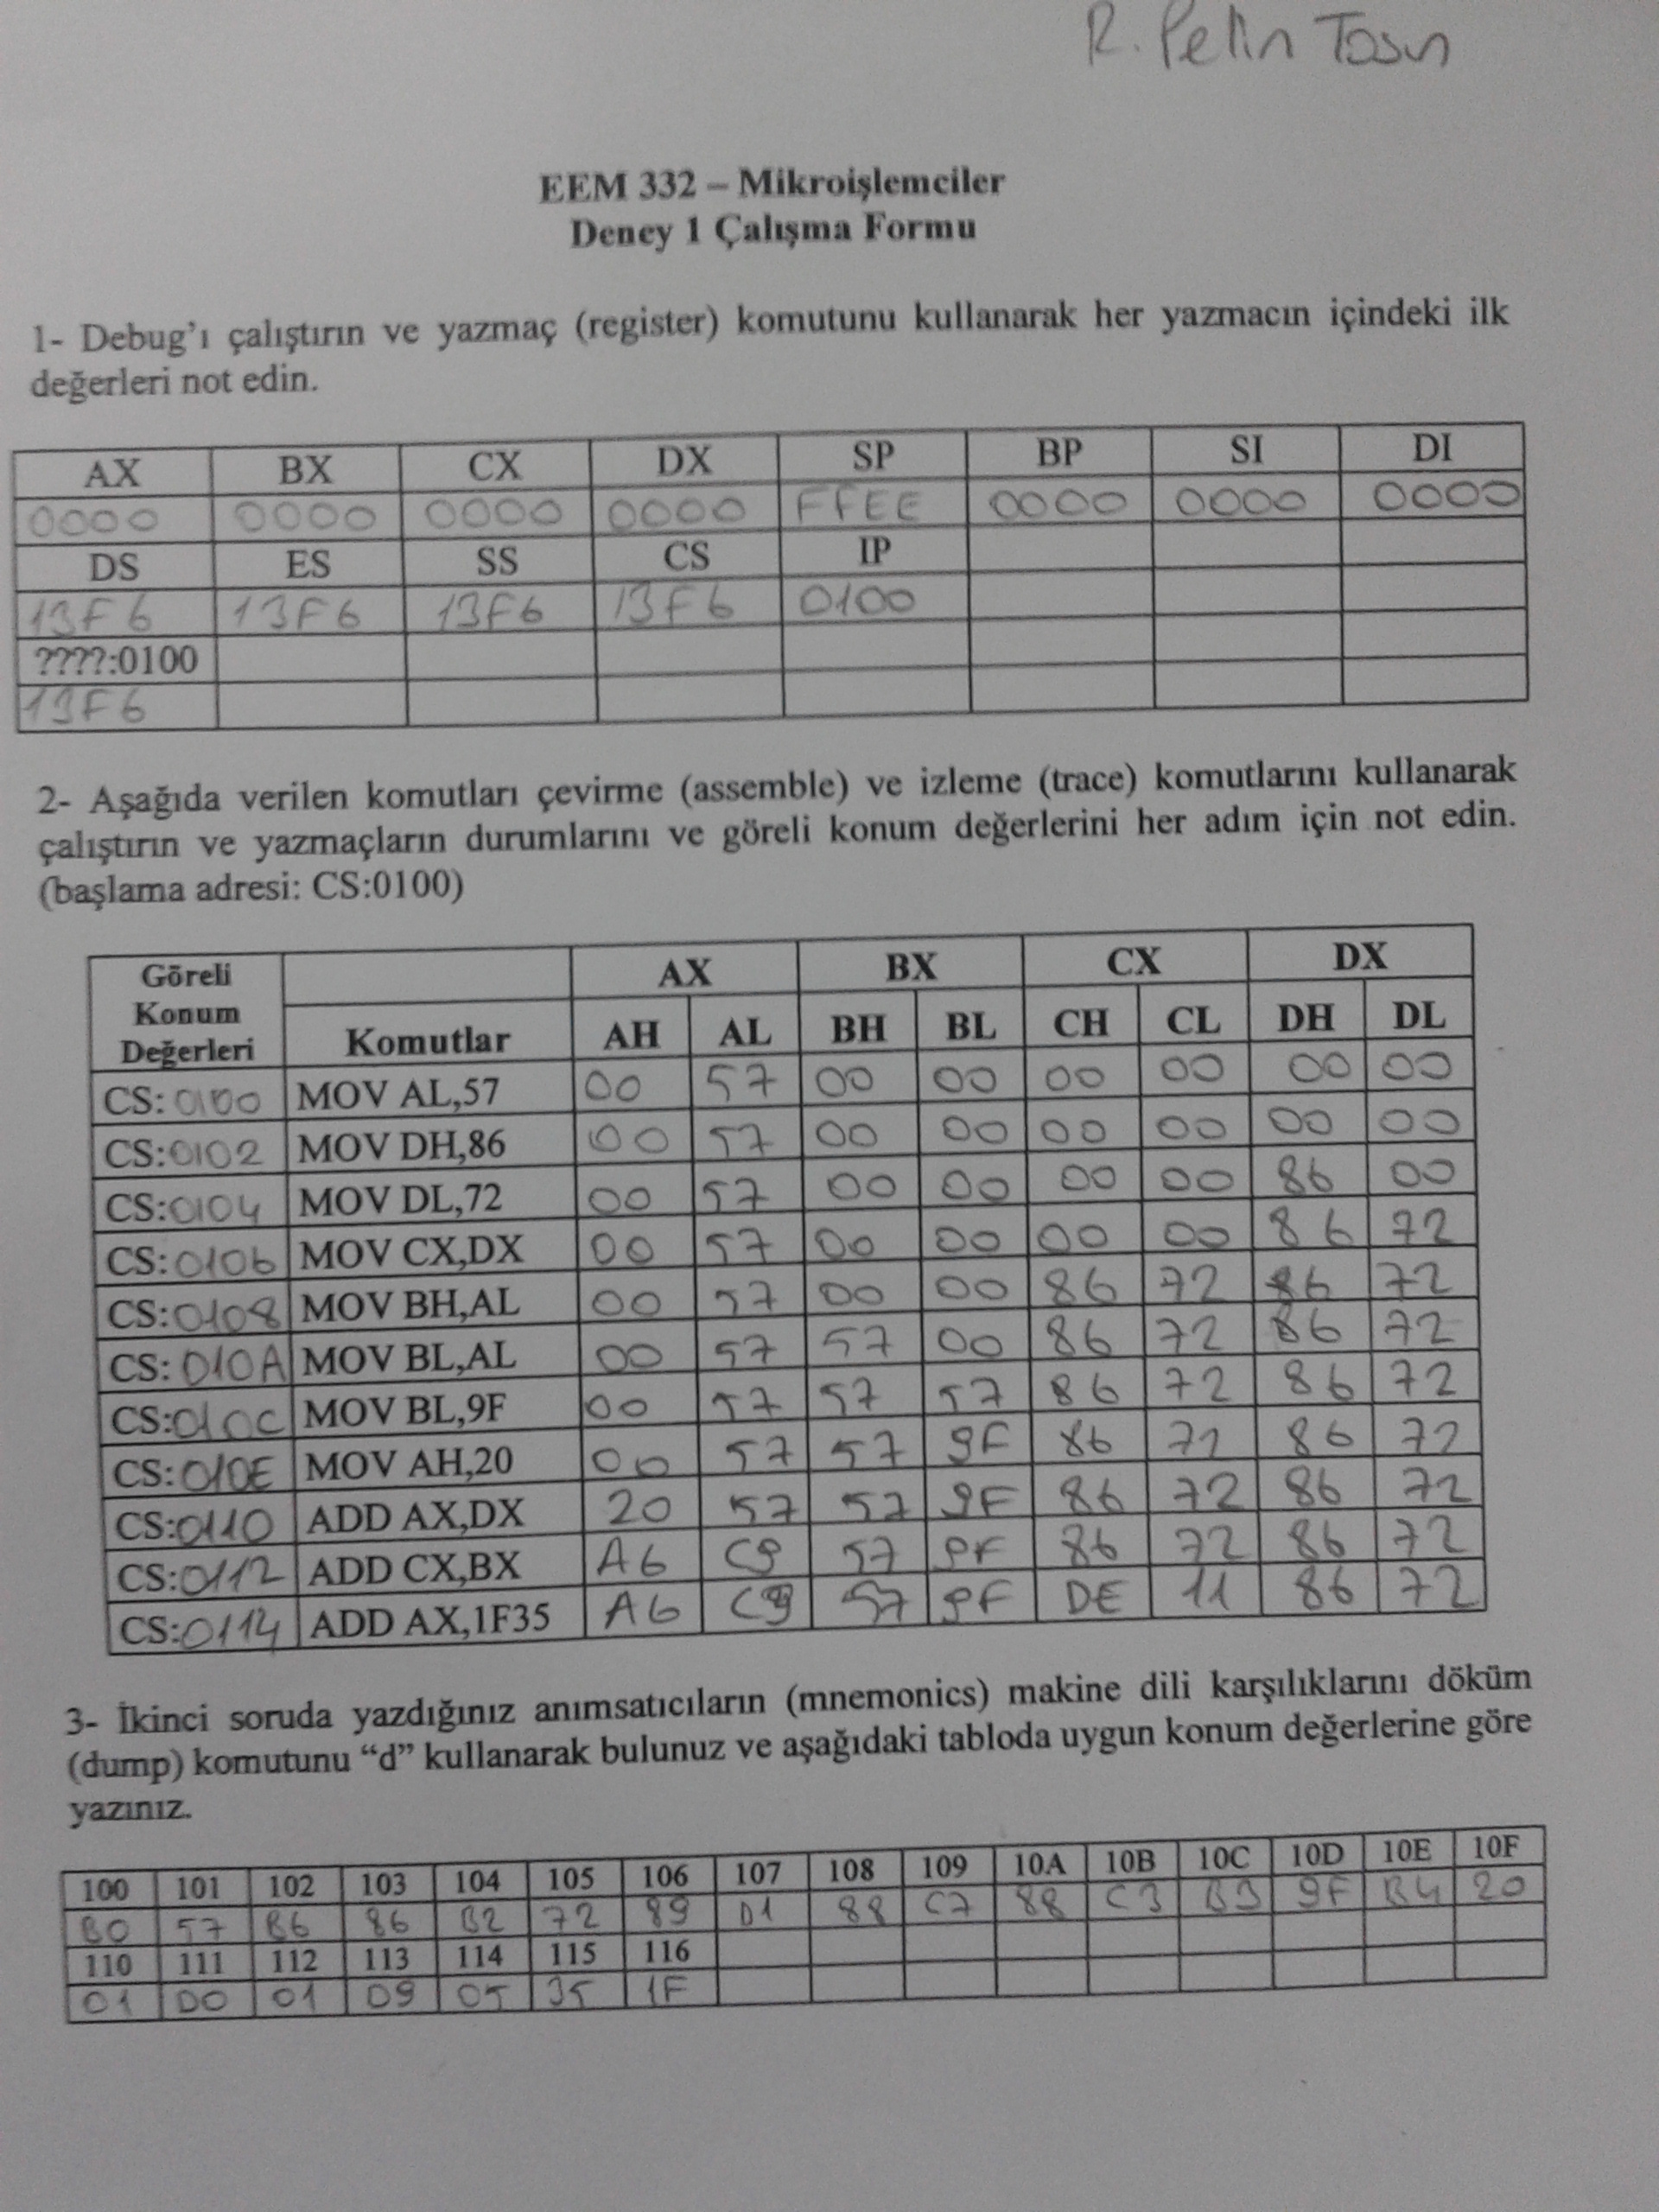 R. Pelin Tosun
EEM 332 – Mikroişlemciler
Deney 1 Çalışma Formu
1- Debug’ı çalıştırın ve yazmaç (register) komutunu kullanarak her yazmacın içindeki ilk
değerleri not edin.
AX BX CX DX SP BP SI DI
0000 0000 0000 0000 FFEE 0000 0000 0000
DS ES SS CS IP
13F6 13F6 13F6 13F6 0100
????:0100
13F6
2- Aşağıda verilen komutları çevirme (assemble) ve izleme (trace) komutlarını kullanarak
çalıştırın ve yazmaçların durumlarını ve göreli konum değerlerini her adım için not edin.
(başlama adresi: CS:0100)
Göreli Konum Değerleri Komutlar AX BX CX DX
AH AL BH BL CH CL DH DL
CS:0100 MOV AL,57 00 57 00 00 00 00 00 00
CS:0102 MOV DH,86 00 57 00 00 00 00 00 00
CS:0104 MOV DL,72 00 57 00 00 00 00 86 00
CS:0106 MOV CX,DX 00 57 00 00 00 00 86 72
CS:0108 MOV BH,AL 00 57 00 00 86 72 86 72
CS:010A MOV BL,AL 00 57 57 00 86 72 86 72
CS:010C MOV BL,9F 00 57 57 57 86 72 86 72
CS:010E MOV AH,20 00 57 57 9F 86 72 86 72
CS:0110 ADD AX,DX 20 57 57 9F 86 72 86 72
CS:0112 ADD CX,BX A6 C9 57 9F 86 72 86 72
CS:0114 ADD AX,1F35 A6 C9 57 9F DE 11 86 72
3- İkinci soruda yazdığınız anımsatıcıların (mnemonics) makine dili karşılıklarını döküm
(dump) komutunu “d” kullanarak bulunuz ve aşağıdaki tabloda uygun konum değerlerine göre
yazınız.
100 101 102 103 104 105 106 107 108 109 10A 10B 10C 10D 10E 10F
B0 57 B6 86 B2 72 89 D1 88 C7 88 C3 B3 9F B4 20
110 111 112 113 114 115 116
01 D0 01 D9 05 35 1F